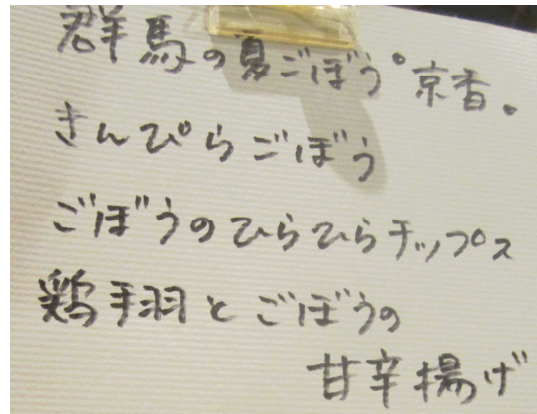 群馬の夏ごぼう°京香。
きんぴらごぼう
ごぼうのひらひらチップス
鶏手羽とごぼうの
甘辛揚げ